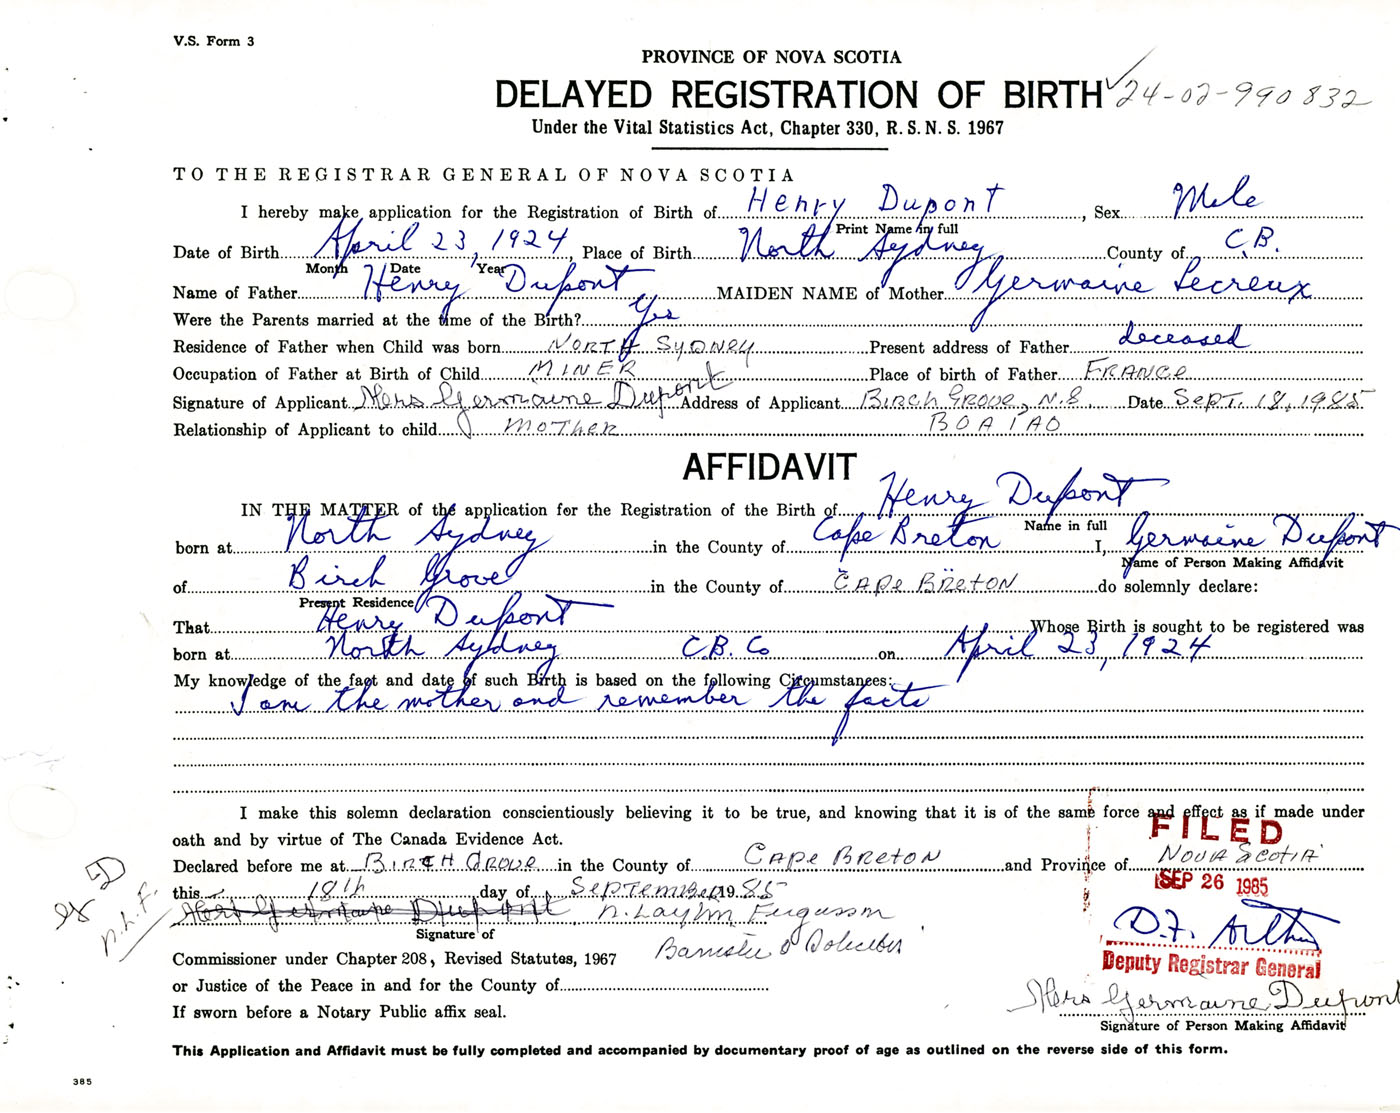 V.S. Form 3
PROVINCE OF NOVA SCOTIA
DELAYED REGISTRATION OF BIRTH ✓24-02-990832
Under the Vital Statistics Act, Chapter 330, R. S. N. S. 1967
TO THE REGISTRAR GENERAL OF NOVA SCOTIA
I hereby make application for the Registration of Birth of Henry Dupont, Sex Male
Print Name in full
Date of Birth April 23, 1924, Place of Birth North Sydney County of C.B.
Month Date Year
Name of Father Henry Dupont MAIDEN NAME of Mother Germaine Lecreux
Were the Parents married at the time of the Birth? Yes
Residence of Father when Child was born NORTH SYDNEY Present address of Father deceased
Occupation of Father at Birth of Child MINER Place of birth of Father FRANCE
Signature of Applicant Mrs Germaine Dupont Address of Applicant BIRCH GROVE, N.S. Date SEPT. 18, 1985
Relationship of Applicant to child MOTHER BOA 1AO
AFFIDAVIT
IN THE MATTER of the application for the Registration of the Birth of Henry Dupont
Name in full
born at North Sydney in the County of Cape Breton I, Germaine Dupont
Name of Person Making Affidavit
of Birch Grove in the County of CAPE BRETON do solemnly declare:
Present Residence
That Henry Dupont Whose Birth is sought to be registered was
born at North Sydney C.B. Co on April 23, 1924
My knowledge of the fact and date of such Birth is based on the following Circumstances:
I am the mother and remember the facts
I make this solemn declaration conscientiously believing it to be true, and knowing that it is of the same force and effect as if made under
oath and by virtue of The Canada Evidence Act.
FILED
Declared before me at BIRCH GROVE in the County of CAPE BRETON and Province of NOVA SCOTIA
this 18th day of SEPTEMBER 1985
SEP 26 1985
Mrs Germaine Dupont N. Layton Fergusson
Signature of
D.F. Arthur
Barrister & Solicitor
Commissioner under Chapter 208, Revised Statutes, 1967
Deputy Registrar General
or Justice of the Peace in and for the County of
Mrs Germaine Dupont
If sworn before a Notary Public affix seal.
Signature of Person Making Affidavit
This Application and Affidavit must be fully completed and accompanied by documentary proof of age as outlined on the reverse side of this form.
385